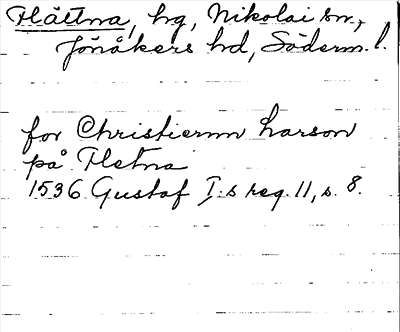 Flättna, hg, Nikolai sn,
Jönåkers hd, Söderm. l.
for Christiernn Larson
på Fletna
1536 Gustaf I:s reg. 11, s. 8.